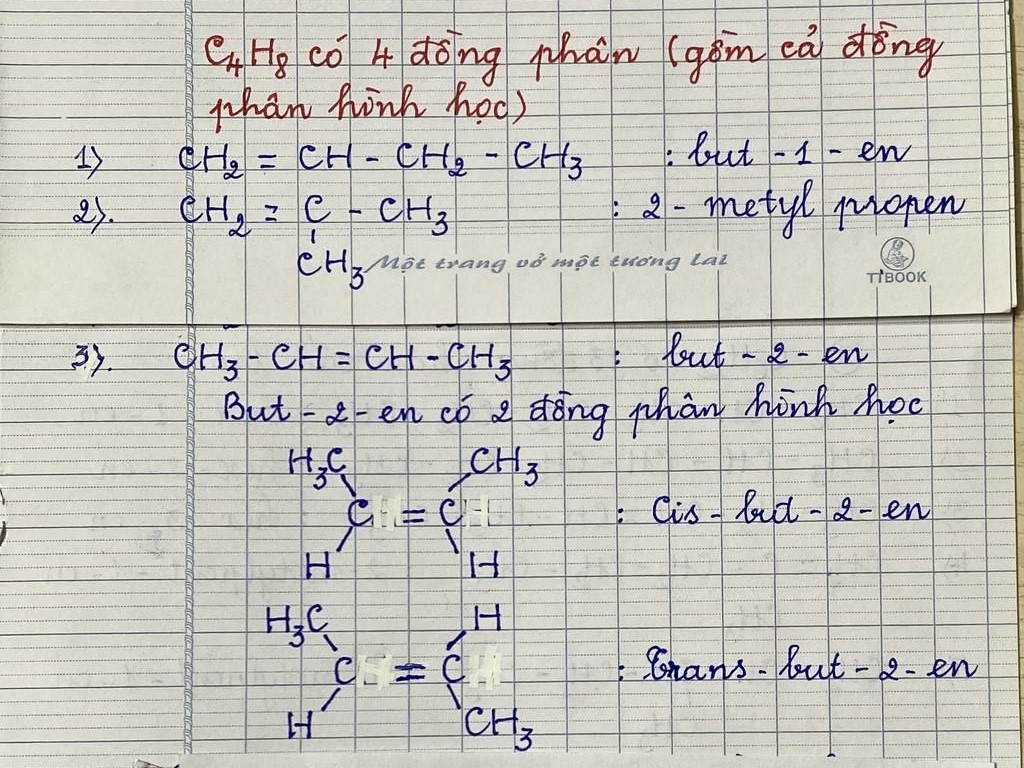 C₄H₈ có 4 đồng phân (gồm cả đồng
phân hình học)
1) CH₂ = CH - CH₂ - CH₃ : but - 1 - en
2). CH₂ = C - CH₃ : 2 - metyl propen
CH₃
Một trang vở một tương lai
TIBOOK
3). CH₃ - CH = CH - CH₃ : but - 2 - en
But - 2 - en có 2 đồng phân hình học
H₃C CH₃
C = C : Cis - but - 2 - en
H H
H₃C H
C = C : Trans - but - 2 - en
H CH₃